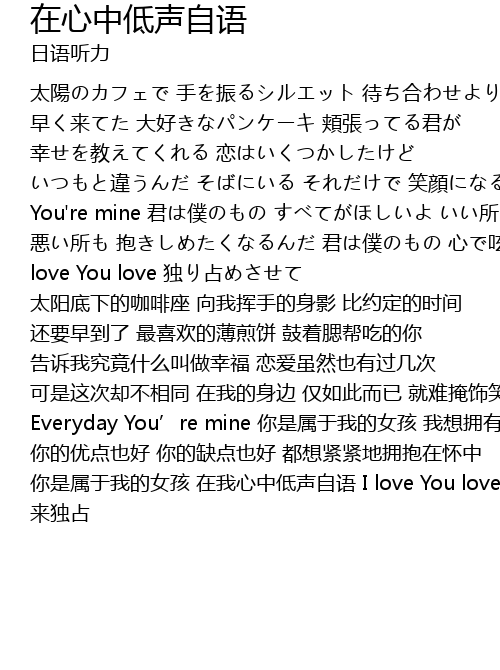 在心中低声自语
日语听力
太陽のカフェで 手を振るシルエット 待ち合わせより
早く来てた 大好きなパンケーキ 頬張ってる君が
幸せを教えてくれる 恋はいくつかしたけど
いつもと違うんだ そばにいる それだけで 笑顔になる
You're mine 君は僕のもの すべてがほしいよ いい所
悪い所も 抱きしめたくなるんだ 君は僕のもの 心で呟
love You love 独り占めさせて
太阳底下的咖啡座 向我挥手的身影 比约定的时间
还要早到了 最喜欢的薄煎饼 鼓着腮帮吃的你
告诉我究竟什么叫做幸福 恋爱虽然也有过几次
可是这次却不相同 在我的身边 仅如此而已 就难掩饰笑
Everyday You’re mine 你是属于我的女孩 我想拥有
你的优点也好 你的缺点也好 都想紧紧地拥抱在怀中
你是属于我的女孩 在我心中低声自语 I love You love
来独占